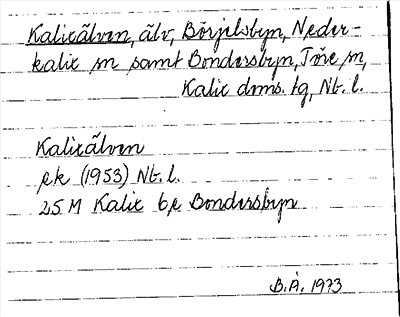 Kalixälven, älv, Börjelsbyn, Neder-
kalix sn samt Bondersbyn, Töre sn,
Kalix doms. tg, Nb. l.
Kalixälven
ek (1953) Nb. l.
25 M Kalix bl Bondersbyn
B.Å. 1973